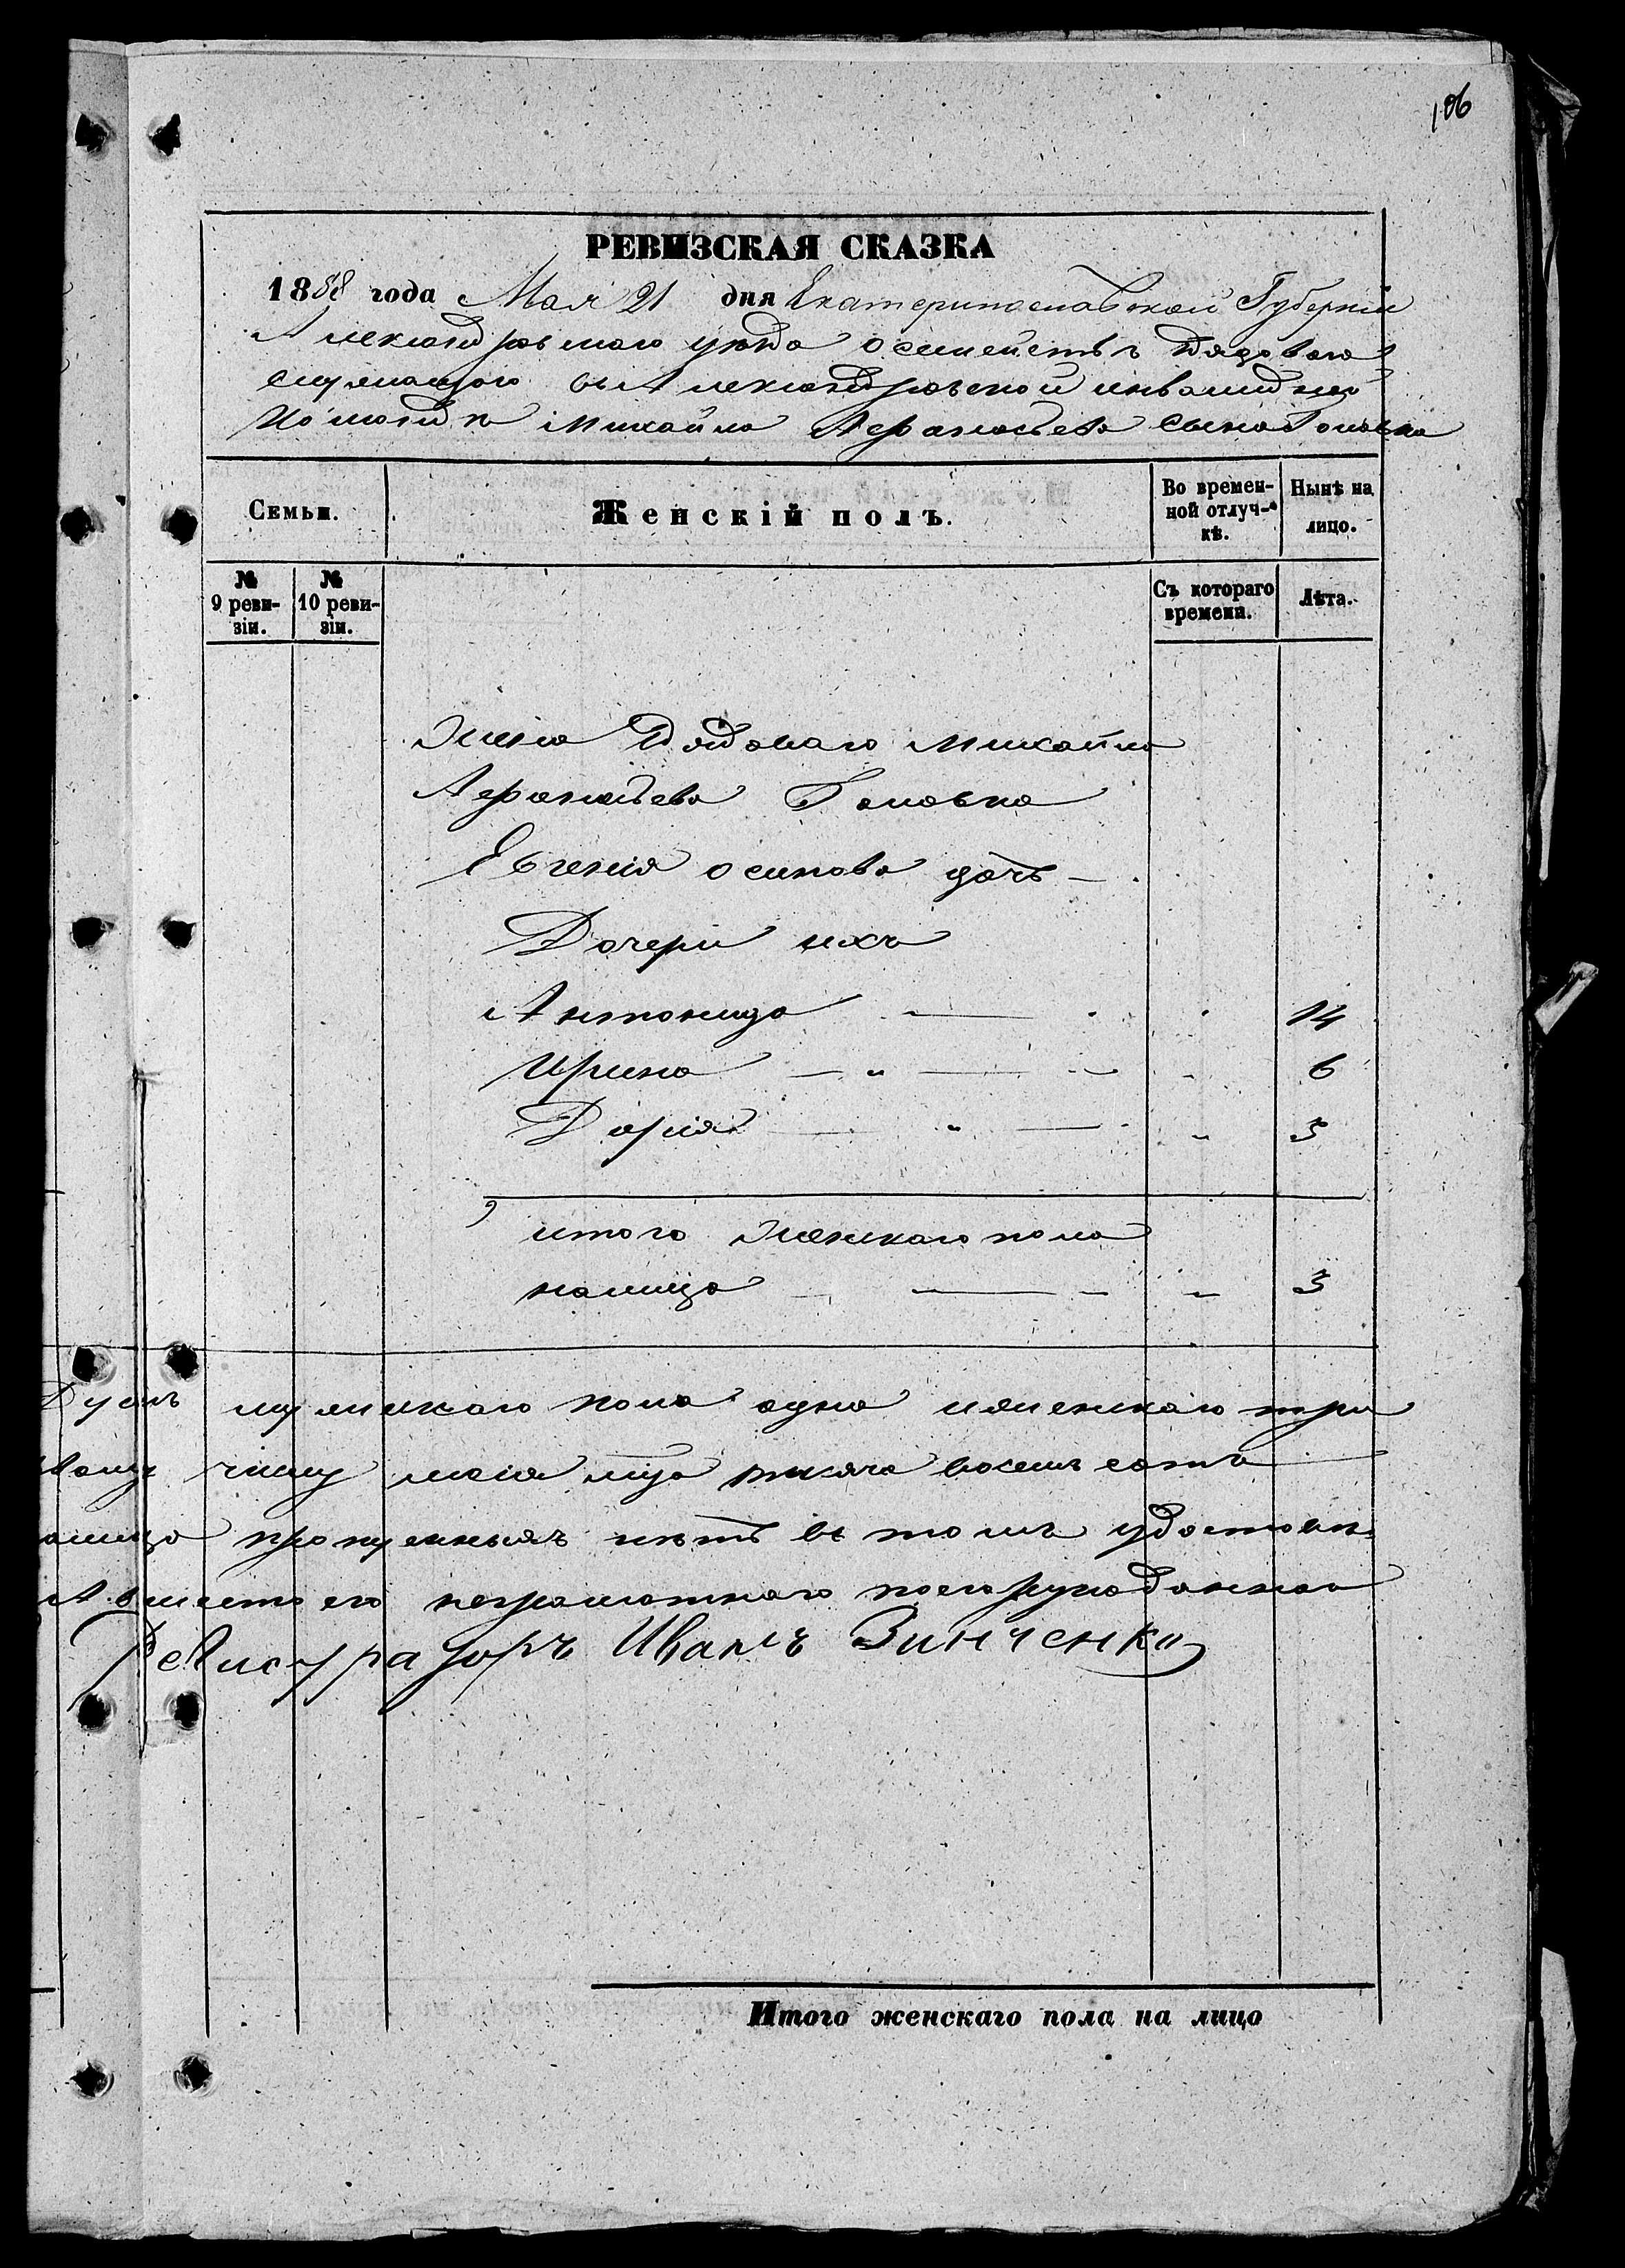 106
РЕВИЗСКАЯ СКАЗКА
1858 года Мая 21 дня Екатеринославской Губерніи
Александровскаго уѣзда о семействѣ Рядоваго
служащаго въ Александровской инвалидной
Командѣ Михайла Афанасьева сына Головка
Семьи.
Женскій полъ.
Во времен-
ной отлуч-
кѣ.
Нынѣ на
лицо.
№
9 реви-
зіи.
№
10 реви-
зіи.
Съ котораго
времени.
Лѣта.
Жена Рядоваго Михайла
Афанасьева Головка
Евгенія осипова дочь
Дочери ихъ
Антонида 14
Ирина 6
Дарія 3
итого женскаго пола
налицо 3
Душъ мужескаго пола одна и женскаго три
числу мая мца тысяча восемь сотъ
пропущенныхъ нѣтъ въ томъ
А вместо его неграмотнаго
Регистраторъ Иванъ Зинченко
Итого женскаго пола на лицо